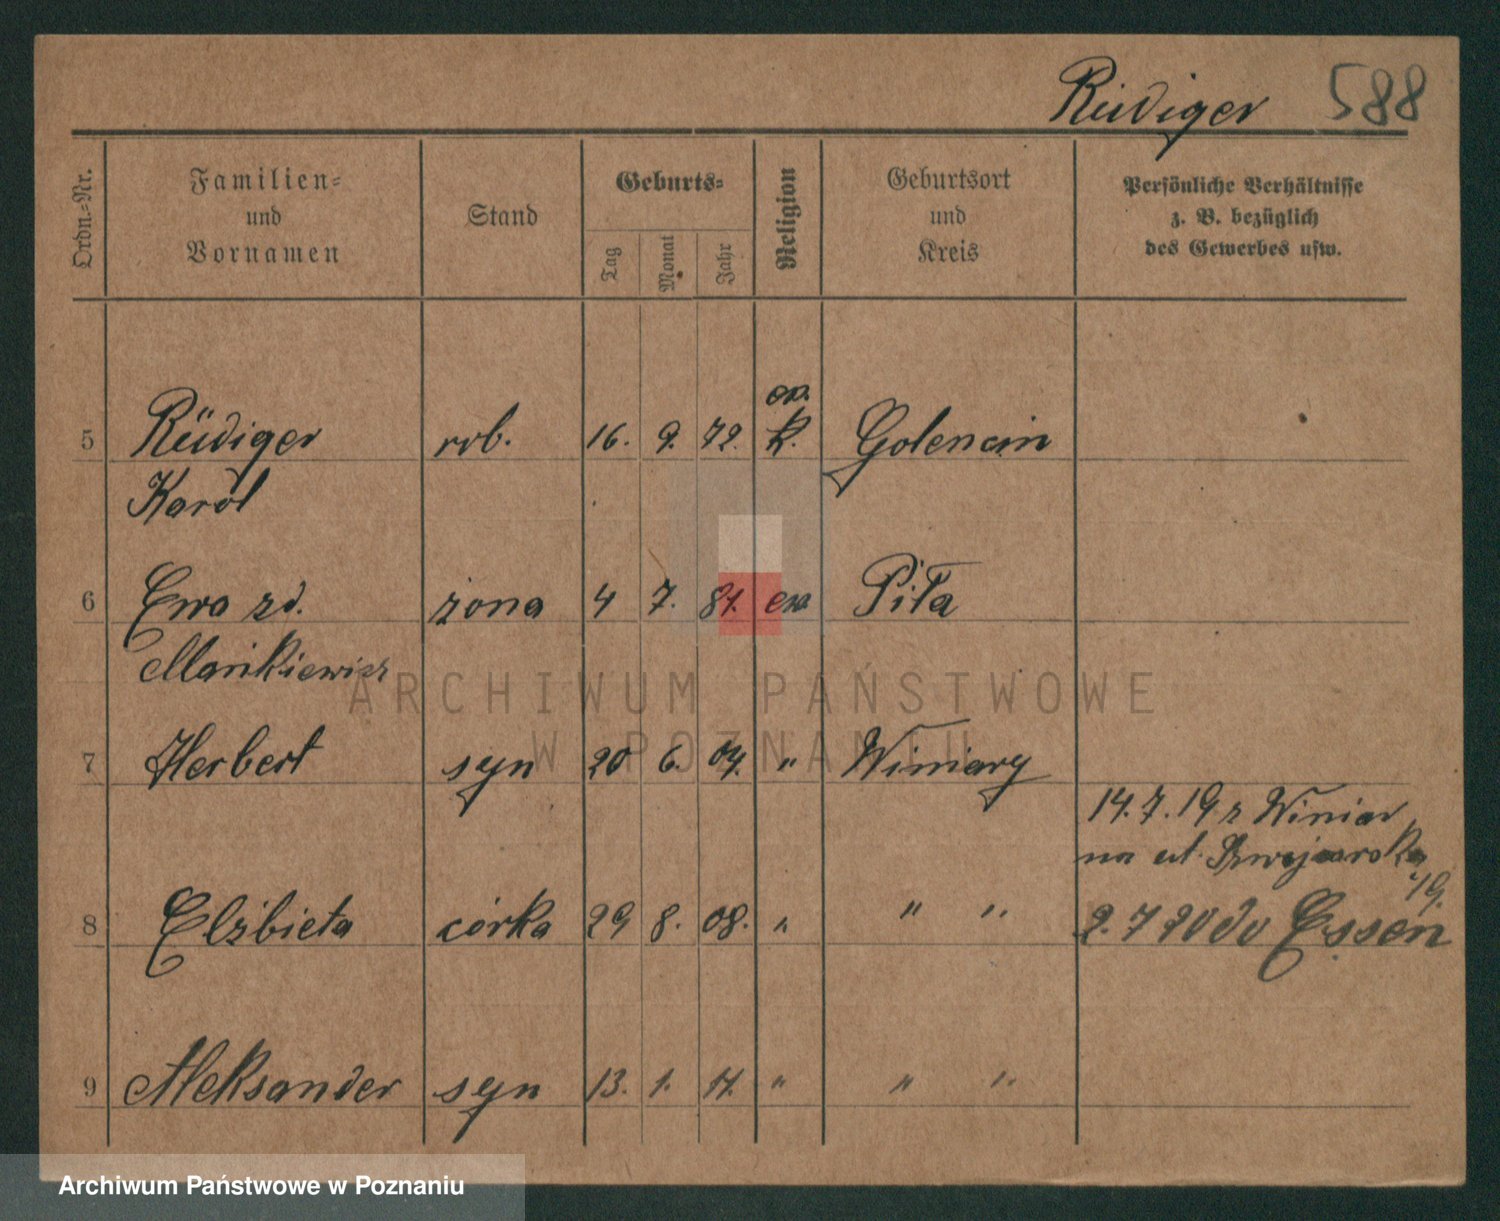 Rüdiger 588
Ordn.-Nr.
Familien-
und
Vornamen
Stand
Geburts-
Tag
Monat
Jahr
Religion
Geburtsort
und
Kreis
Persönliche Verhältnisse
z. B. bezüglich
des Gewerbes usw.
ew.
5 Rüdiger rob. 16. 9. 72. k. Golencin
Karol
6 Ewa zd. żona 4 7. 81. ew Piła
Mańkiewicz
ARCHIWUM PAŃSTWOWE
W POZNANIU
7 Herbert syn 20 6. 04. " Winiary
14.7.19 z Winiar
na ul.
19.
8 Elżbieta córka 29 8. 08. " " " 2.7 20 do Essen
9 Aleksander syn 13. 1. 11. " " "
Archiwum Państwowe w Poznaniu